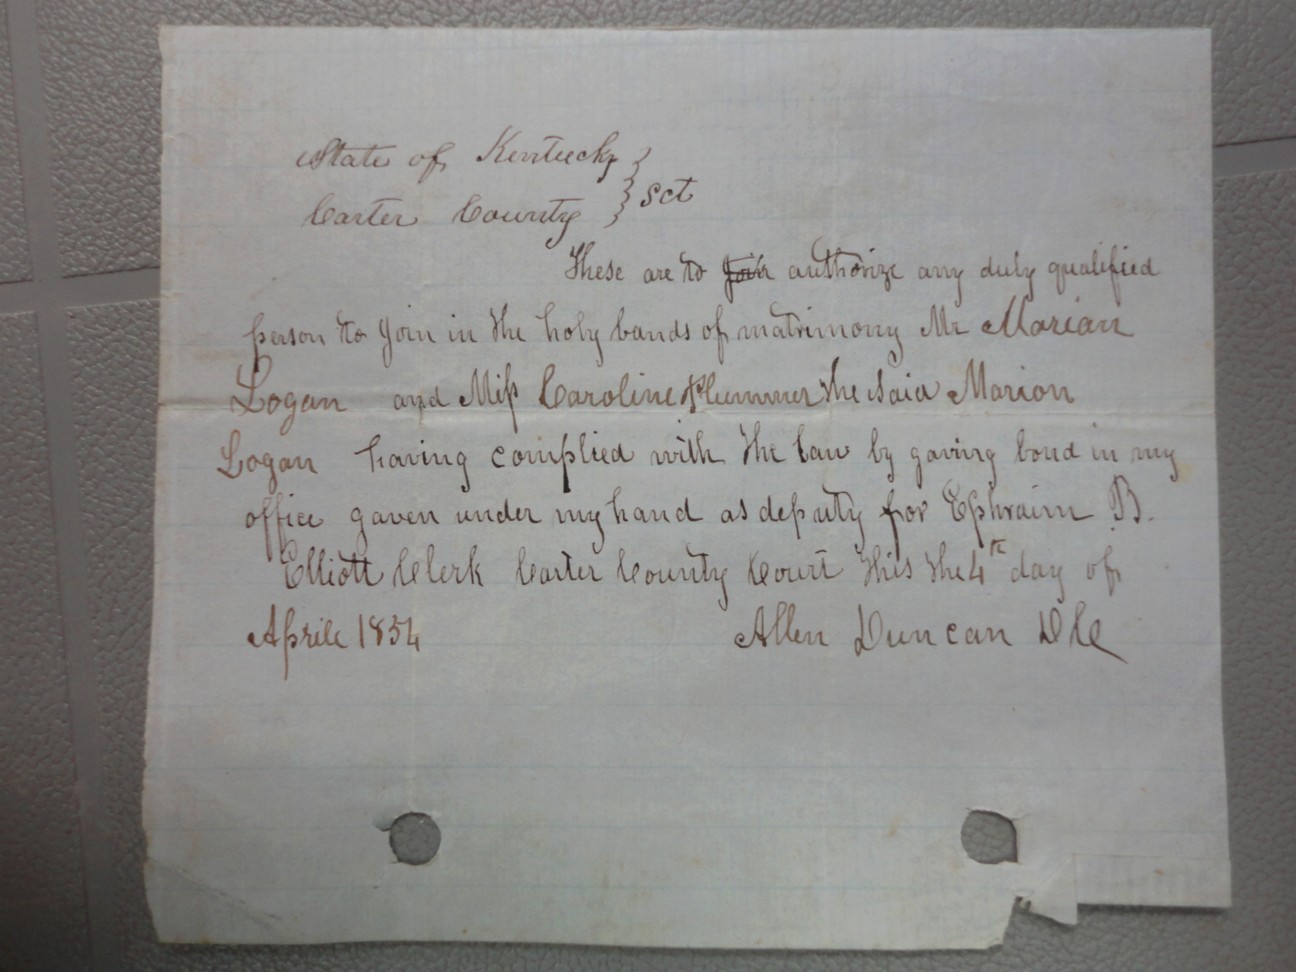 State of Kentucky }
Carter County } Sct
These are to join authorize any duly qualified
person to join in the holy bands of matrimony Mr Marian
Logan and Miss Caroline Plummer the said Marion
Logan having complied with the law by gaving bond in my
office gaven under my hand as deputy for Ephraim B.
Elliott Clerk Carter County Court this the 4th day of
Aprile 1854 Allen Duncan D C